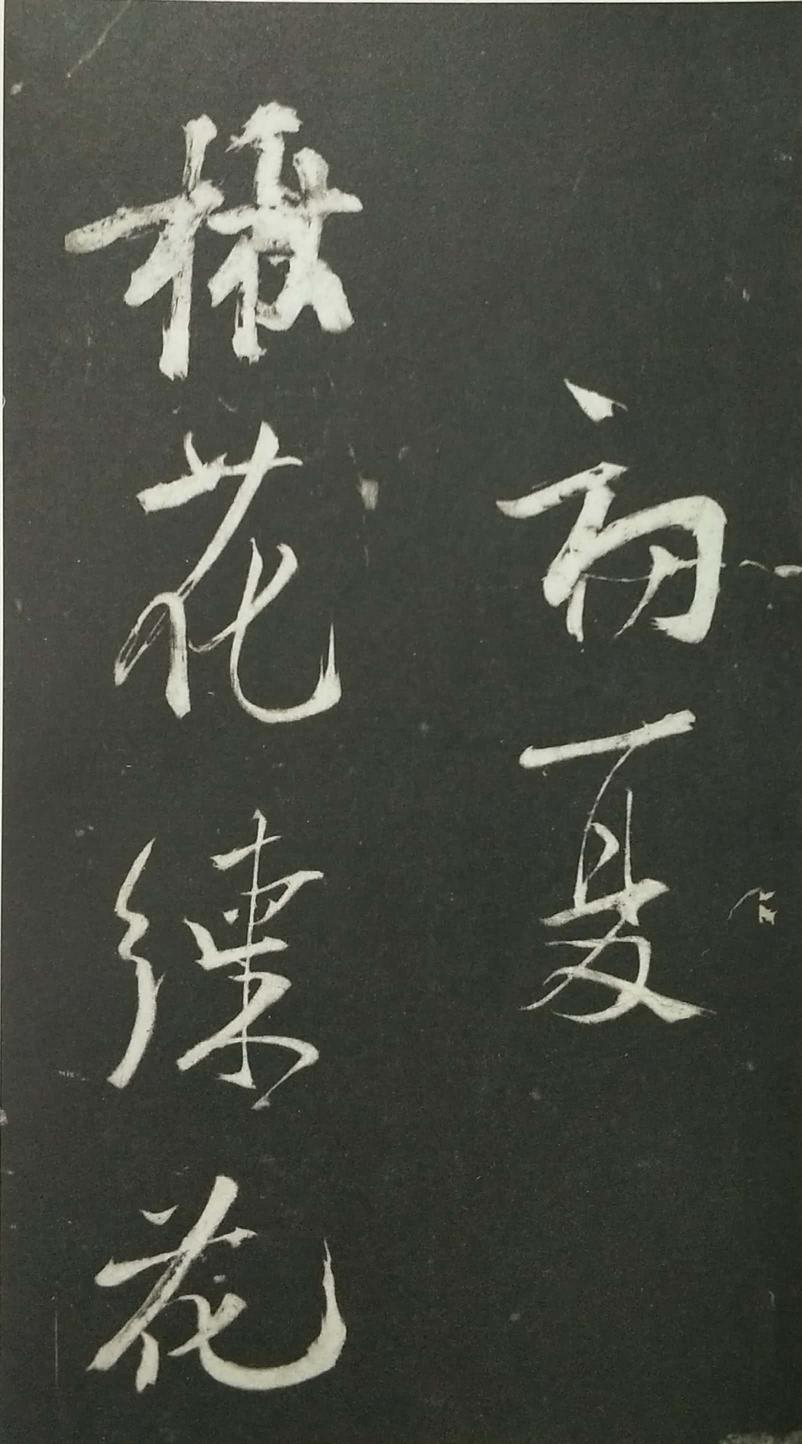 初夏
花練花